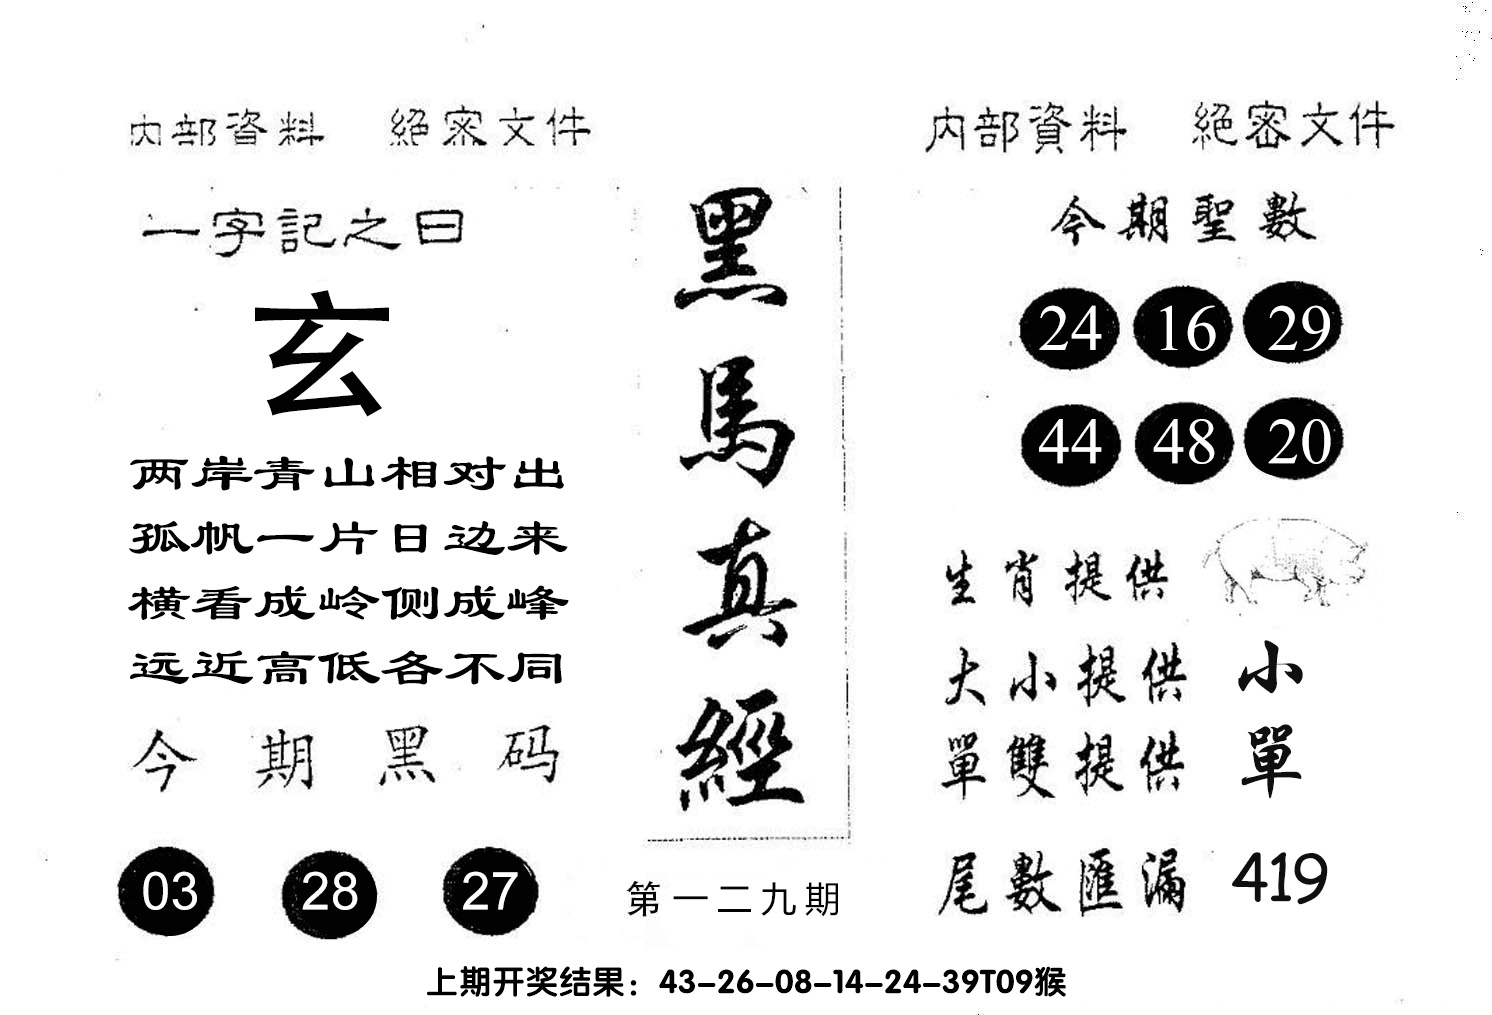 内部資料 絕密文件
一字記之曰
玄
两岸青山相对出
孤帆一片日边来
横看成岭侧成峰
远近高低各不同
今期黑码
03 28 27
黑馬真經
第一二九期
内部資料 絕密文件
今期聖數
24 16 29
44 48 20
生肖提供
大小提供 小
單雙提供 單
尾數匯漏 419
上期开奖结果：43-26-08-14-24-39T09猴